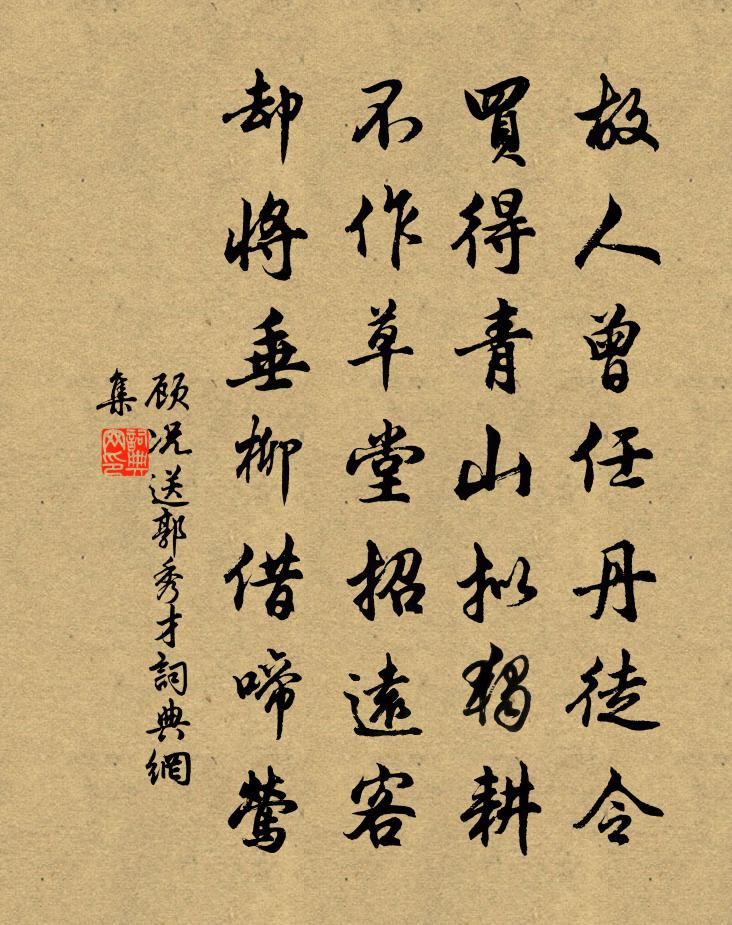 故人曾任丹徒令
買得青山拟獨耕
不作草堂招遠客
却將垂柳借啼鶯
顾况送郭秀才詞典網
集
詞典網印